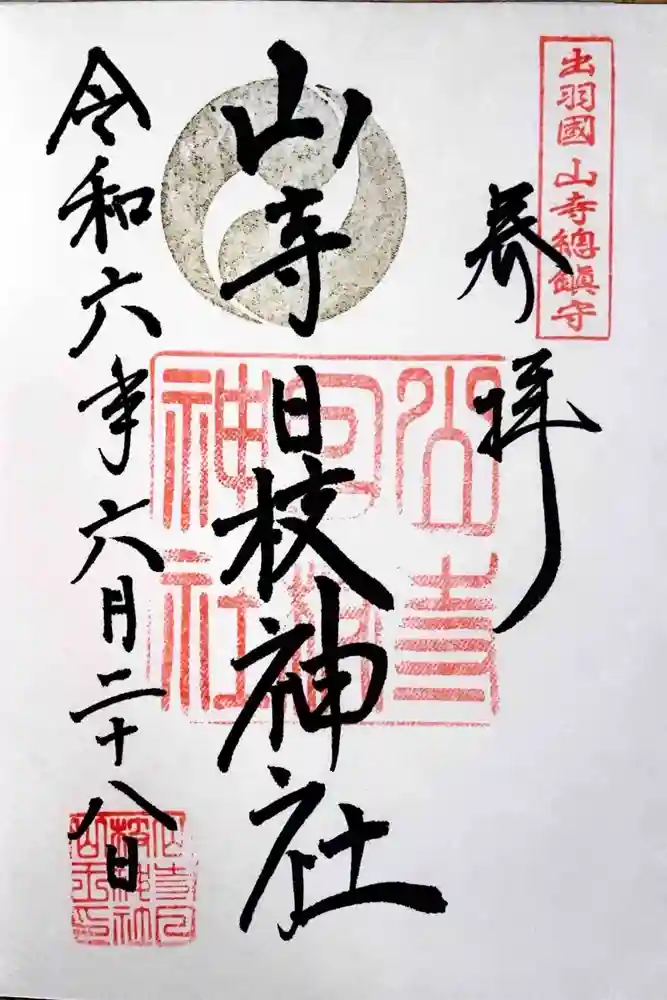 出羽國 山寺總鎮守
奉拝
山寺日枝神社
山寺
日枝
神社
令和六年六月二十八日